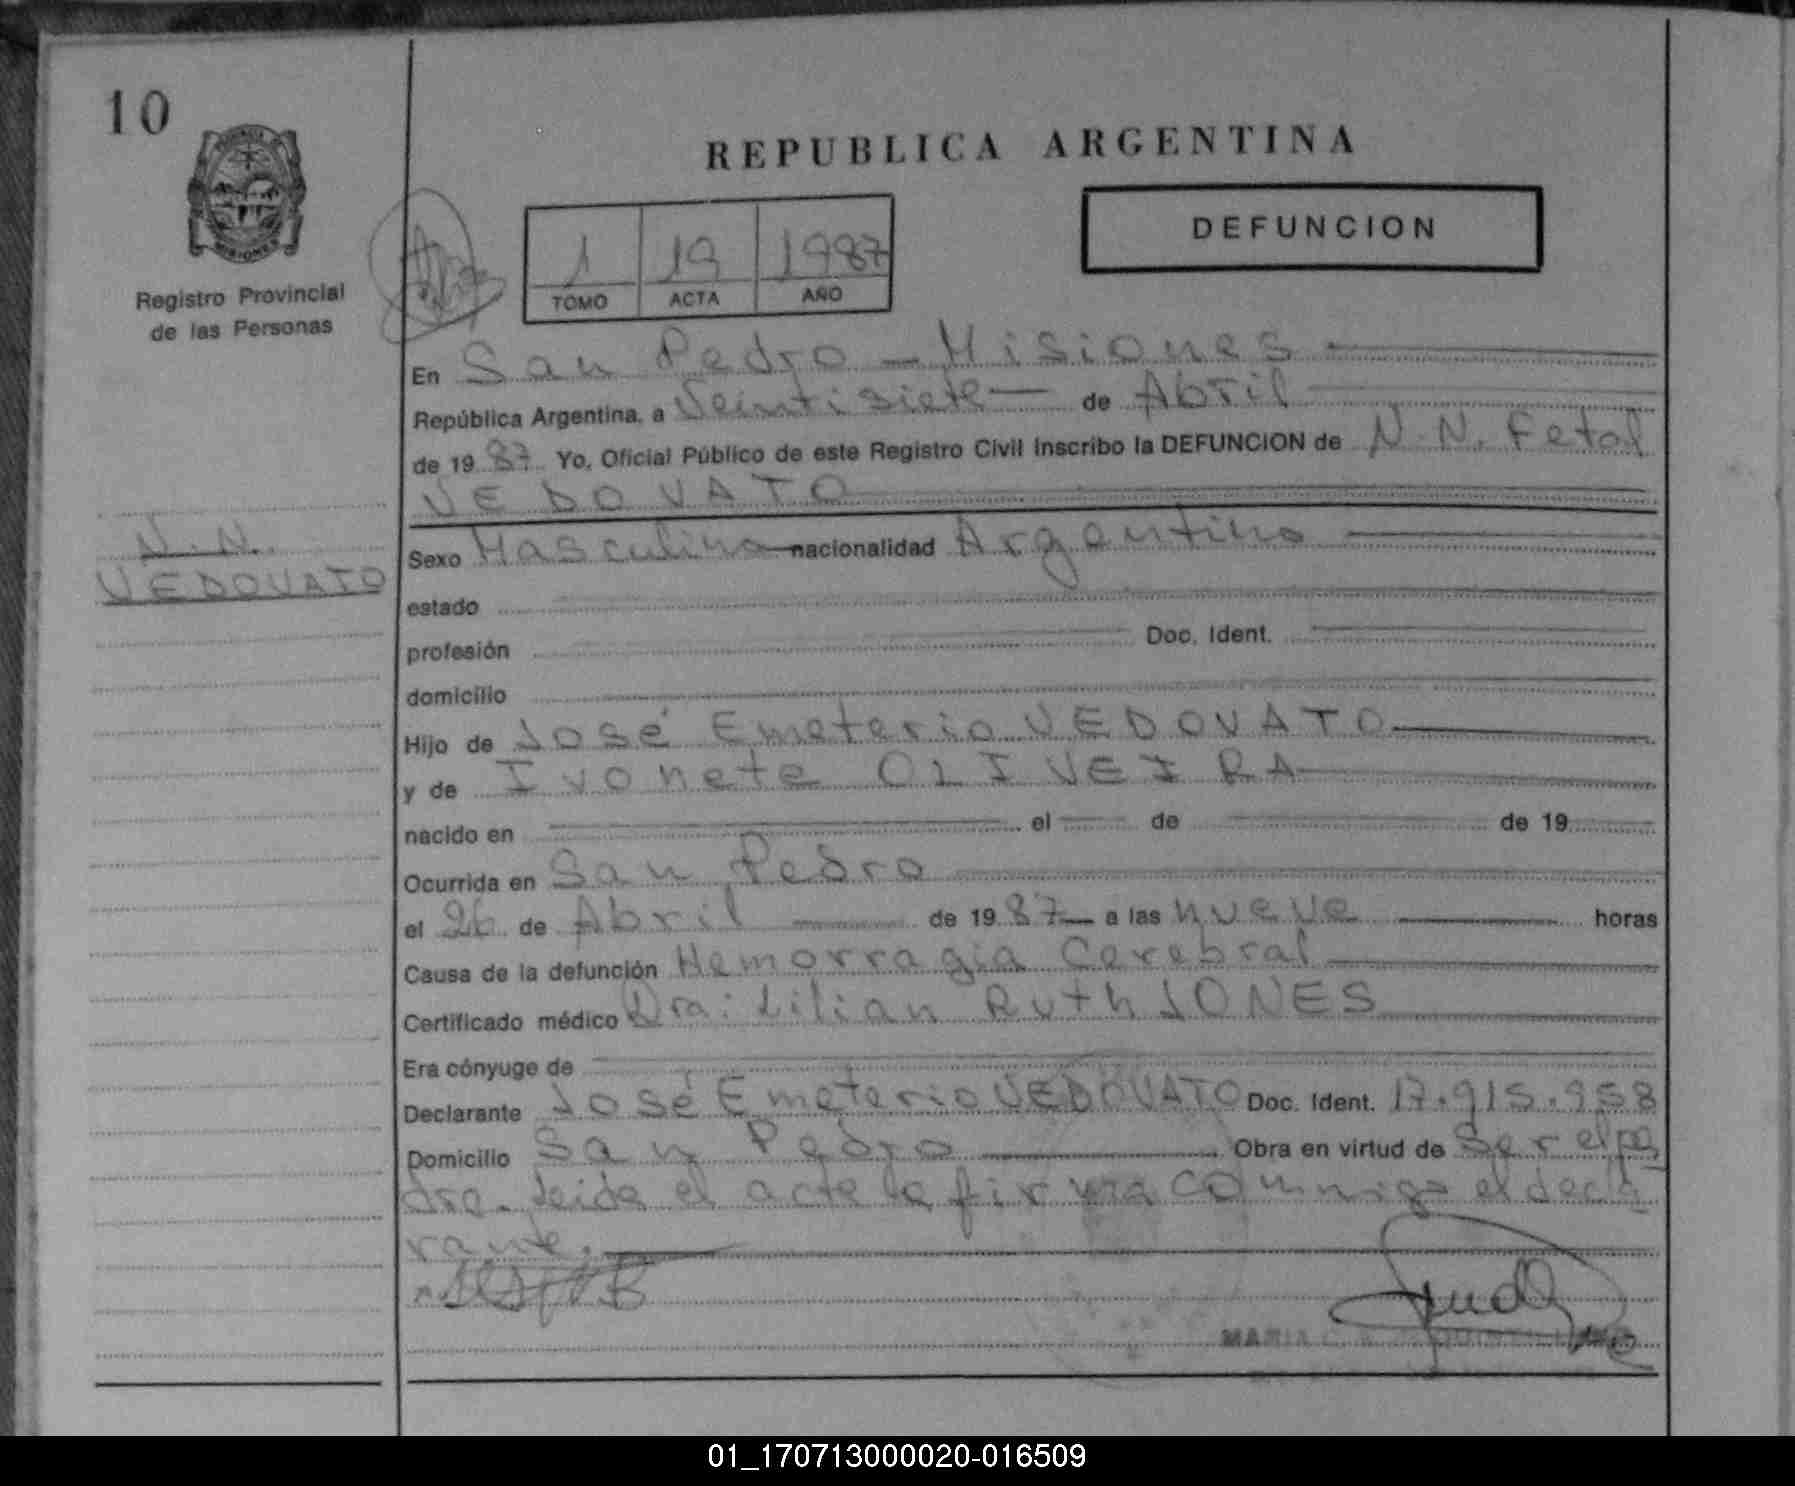 10
REPUBLICA ARGENTINA
DEFUNCION
1 19 1987
TOMO ACTA AÑO
MISIONES
Registro Provincial
de las Personas
En San Pedro - Misiones
República Argentina, a Veintisiete de Abril
de 19 87 Yo, Oficial Público de este Registro Civil Inscribo la DEFUNCION de N.N. Fetal
VEDOVATO
N.N.
VEDOVATO
Sexo Masculino nacionalidad Argentino
estado
profesión Doc. Ident.
domicilio
Hijo de José Emeterio VEDOVATO
y de Ivonete OLIVEIRA
nacido en el de de 19
Ocurrida en San Pedro
el 26 de Abril de 19 87 a las nueve horas
Causa de la defunción Hemorragia Cerebral
Certificado médico Dra: Lilian Ruth JONES
Era cónyuge de
Declarante José Emeterio VEDOVATO Doc. Ident. 17.915.958
Domicilio San Pedro Obra en virtud de Ser el pa
dre. Leida el acta la firma conmigo el decla
rante.
MARIA
01_170713000020-016509